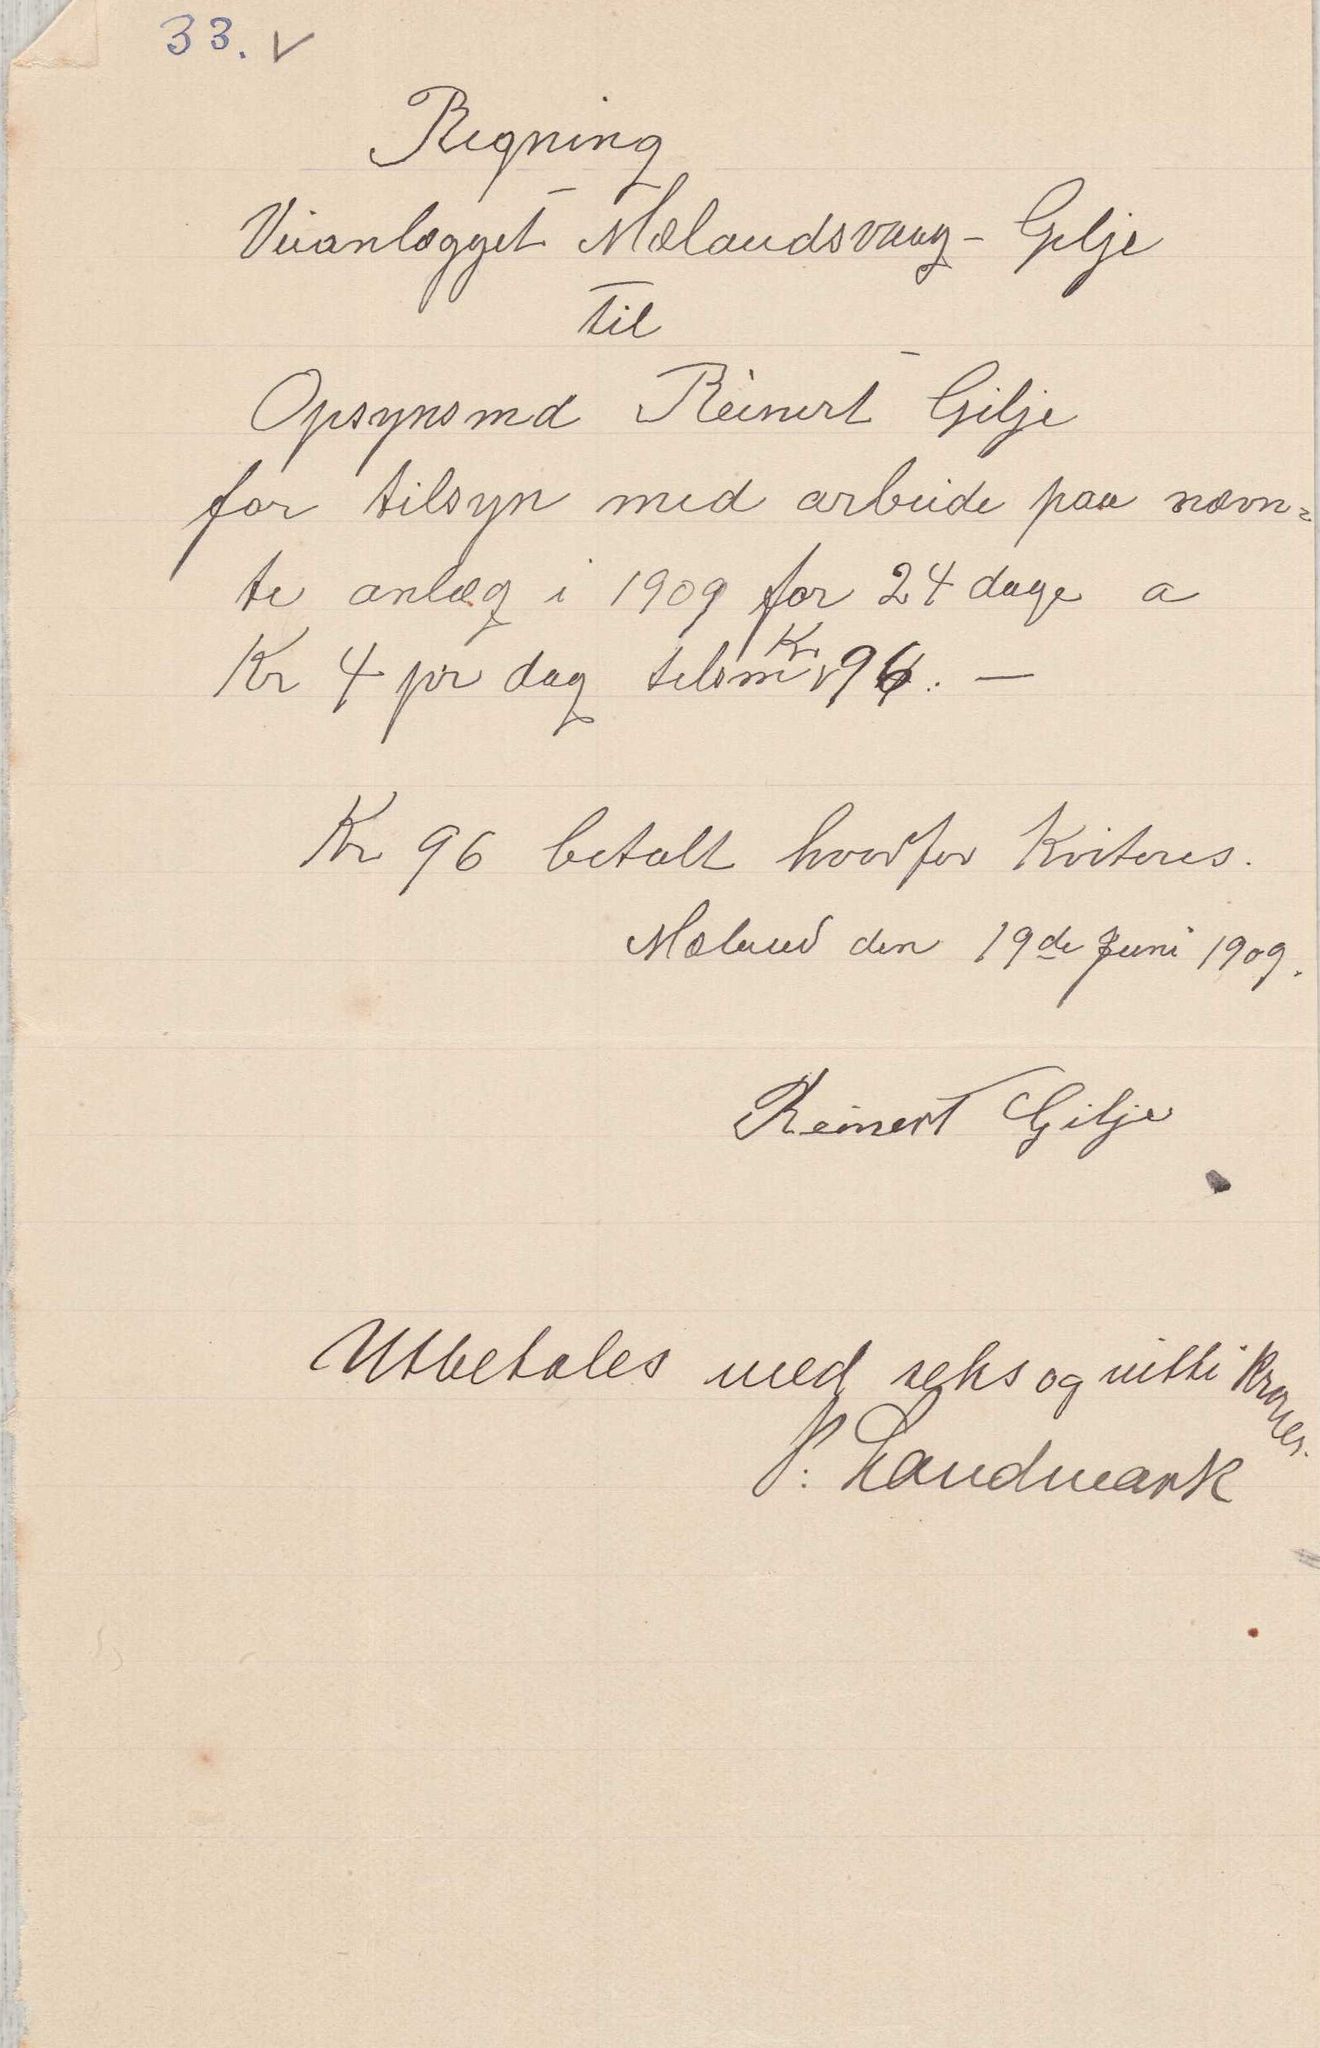 33. ✓
Regning
Veianlægget Mælandsvaag - Gilje
til
Opsynsmd Reinert Gilje
for tilsyn med arbeide paa nævn=
te anlæg i 1909 for 24 dage a
Kr 4 pr dag tilsm Kr 96. —
Kr 96 betalt hvorfor kviteres.
Mæland den 19de Juni 1909.
Reinert Gilje
Utbetales med seks og nitti kroner.
P. Landmark